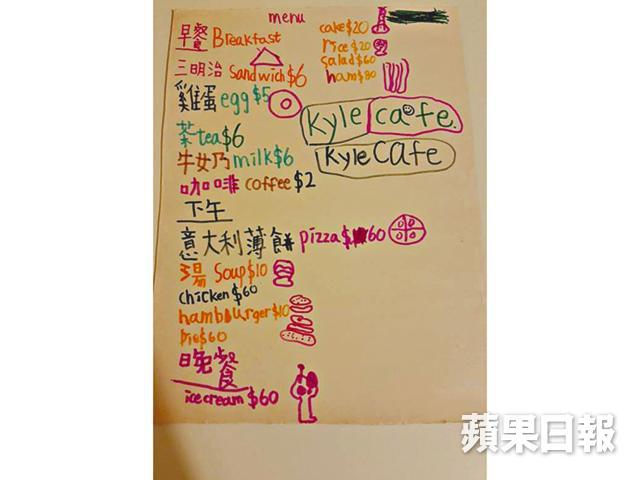 menu
早餐 Breakfast
三明治 sandwich $6
雞蛋 egg $5
茶 tea $6
牛奶 milk $6
咖啡 coffee $2
下午
意大利薄餅 pizza $60
湯 Soup $10
chicken $60
hambburger $10
pie $60
晚餐
ice cream $60
cake $20
rice $20
salad $60
ham $80
Kyle cafe.
Kyle Cafe
蘋果日報